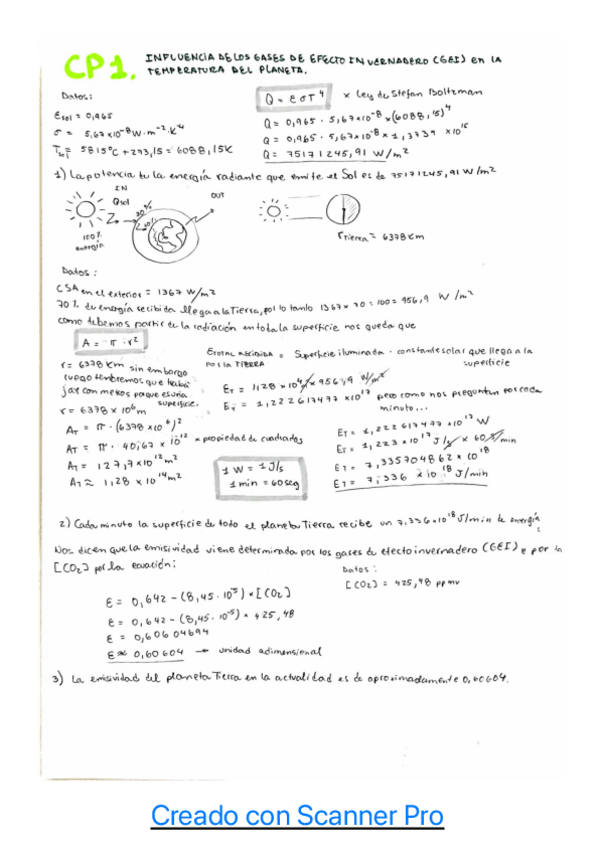 CP1. INFLUENCIA DE LOS GASES DE EFECTO INVERNADERO (GEI) en LA
TEMPERATURA DEL PLANETA.
Datos:
Q = εσT⁴ × Ley de Stefan Boltzman
Esol = 0,965
σ = 5,67×10⁻⁸ W·m⁻²·K⁻⁴
Tsol = 5815°C + 273,15 = 6088,15K
Q = 0,965 · 5,67×10⁻⁸ × (6088,15)⁴
Q = 0,965 · 5,67×10⁻⁸ × 1,3739 × 10¹⁵
Q = 75171245,91 W/m²
1) La potencia de la energía radiante que emite el Sol es de 75171245,91 W/m²
IN
Qsol
100%
energía
30%
OUT
rtierra = 6378 Km
Datos:
CSA en el exterior = 1367 W/m²
70% de energía recibida llega a la Tierra, por lo tanto 1367 × 70 : 100 = 956,9 W/m²
como debemos partir de la radiación en toda la superficie nos queda que
A = π · r²
r = 6378 Km sin embargo
luego tendremos que trabaj
jar con menos porque es una
superficie.
r = 6378 × 10⁶ m
AT = π · (6378 × 10⁶)²
AT = π · 40,67 × 10¹² × propiedad de cuadrados
AT = 127,7 × 10¹² m²
AT ≈ 1,28 × 10¹⁴ m²
ETOTAL RECIBIDA = Superficie iluminada · constante solar que llega a la
POR LA TIERRA superficie
ET = 1,128 × 10¹⁴ m² × 956,9 W/m²
ET = 1,222617497 × 10¹⁷ pero como nos preguntan por cada
minuto...
1 W = 1 J/s
1 min = 60 seg
ET = 1,222617497 × 10¹⁷ W
ET = 1,223 × 10¹⁷ J/s × 60 s/min
ET = 7,335704862 × 10¹⁸
ET = 7,336 × 10¹⁸ J/min
2) Cada minuto la superficie de todo el planeta Tierra recibe un 7.336 × 10¹⁸ J/min de energía
Nos dicen que la emisividad viene determinada por los gases de efecto invernadero (GEI) e por la
[CO₂] por la ecuación:
Datos:
[CO₂] = 425,48 ppmv
ε = 0,642 - (8,45 · 10⁻⁵) × [CO₂]
ε = 0,642 - (8,45 · 10⁻⁵) × 425,48
ε = 0,60604694
ε ≈ 0,60604 → unidad adimensional
3) La emisividad del planeta Tierra en la actualidad es de aproximadamente 0,60604.
Creado con Scanner Pro